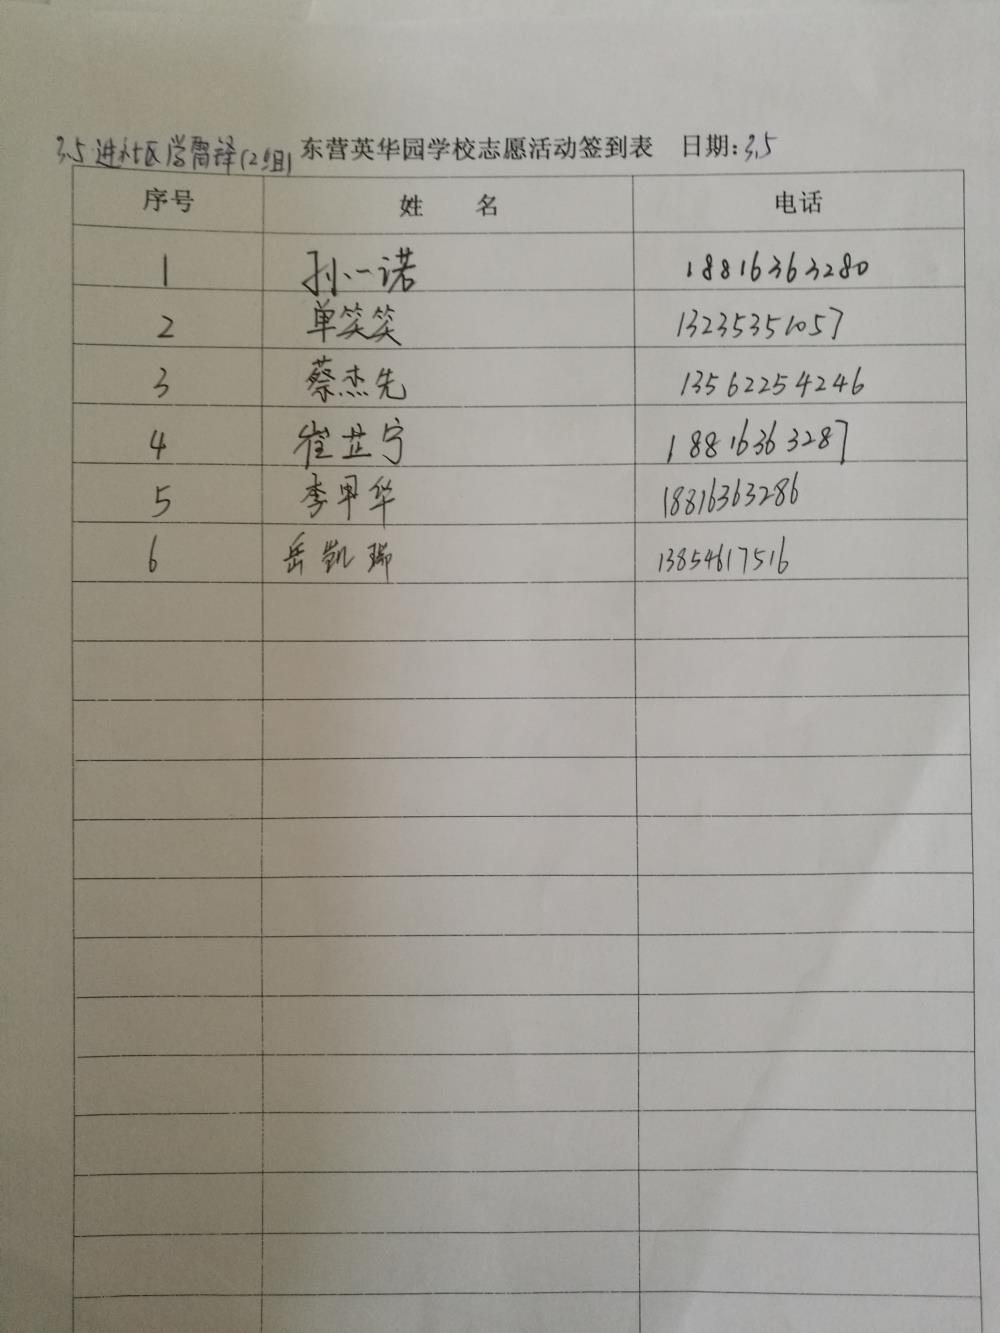 3.5进社区学雷锋(2组) 东营英华园学校志愿活动签到表 日期:3.5
序号 姓 名 电话
1 孙一诺 18816363280
2 单笑笑 13235351057
3 蔡杰先 13562254246
4 崔芷宁 18816363287
5 李甲华 18816363286
6 岳凯瑞 13854617516